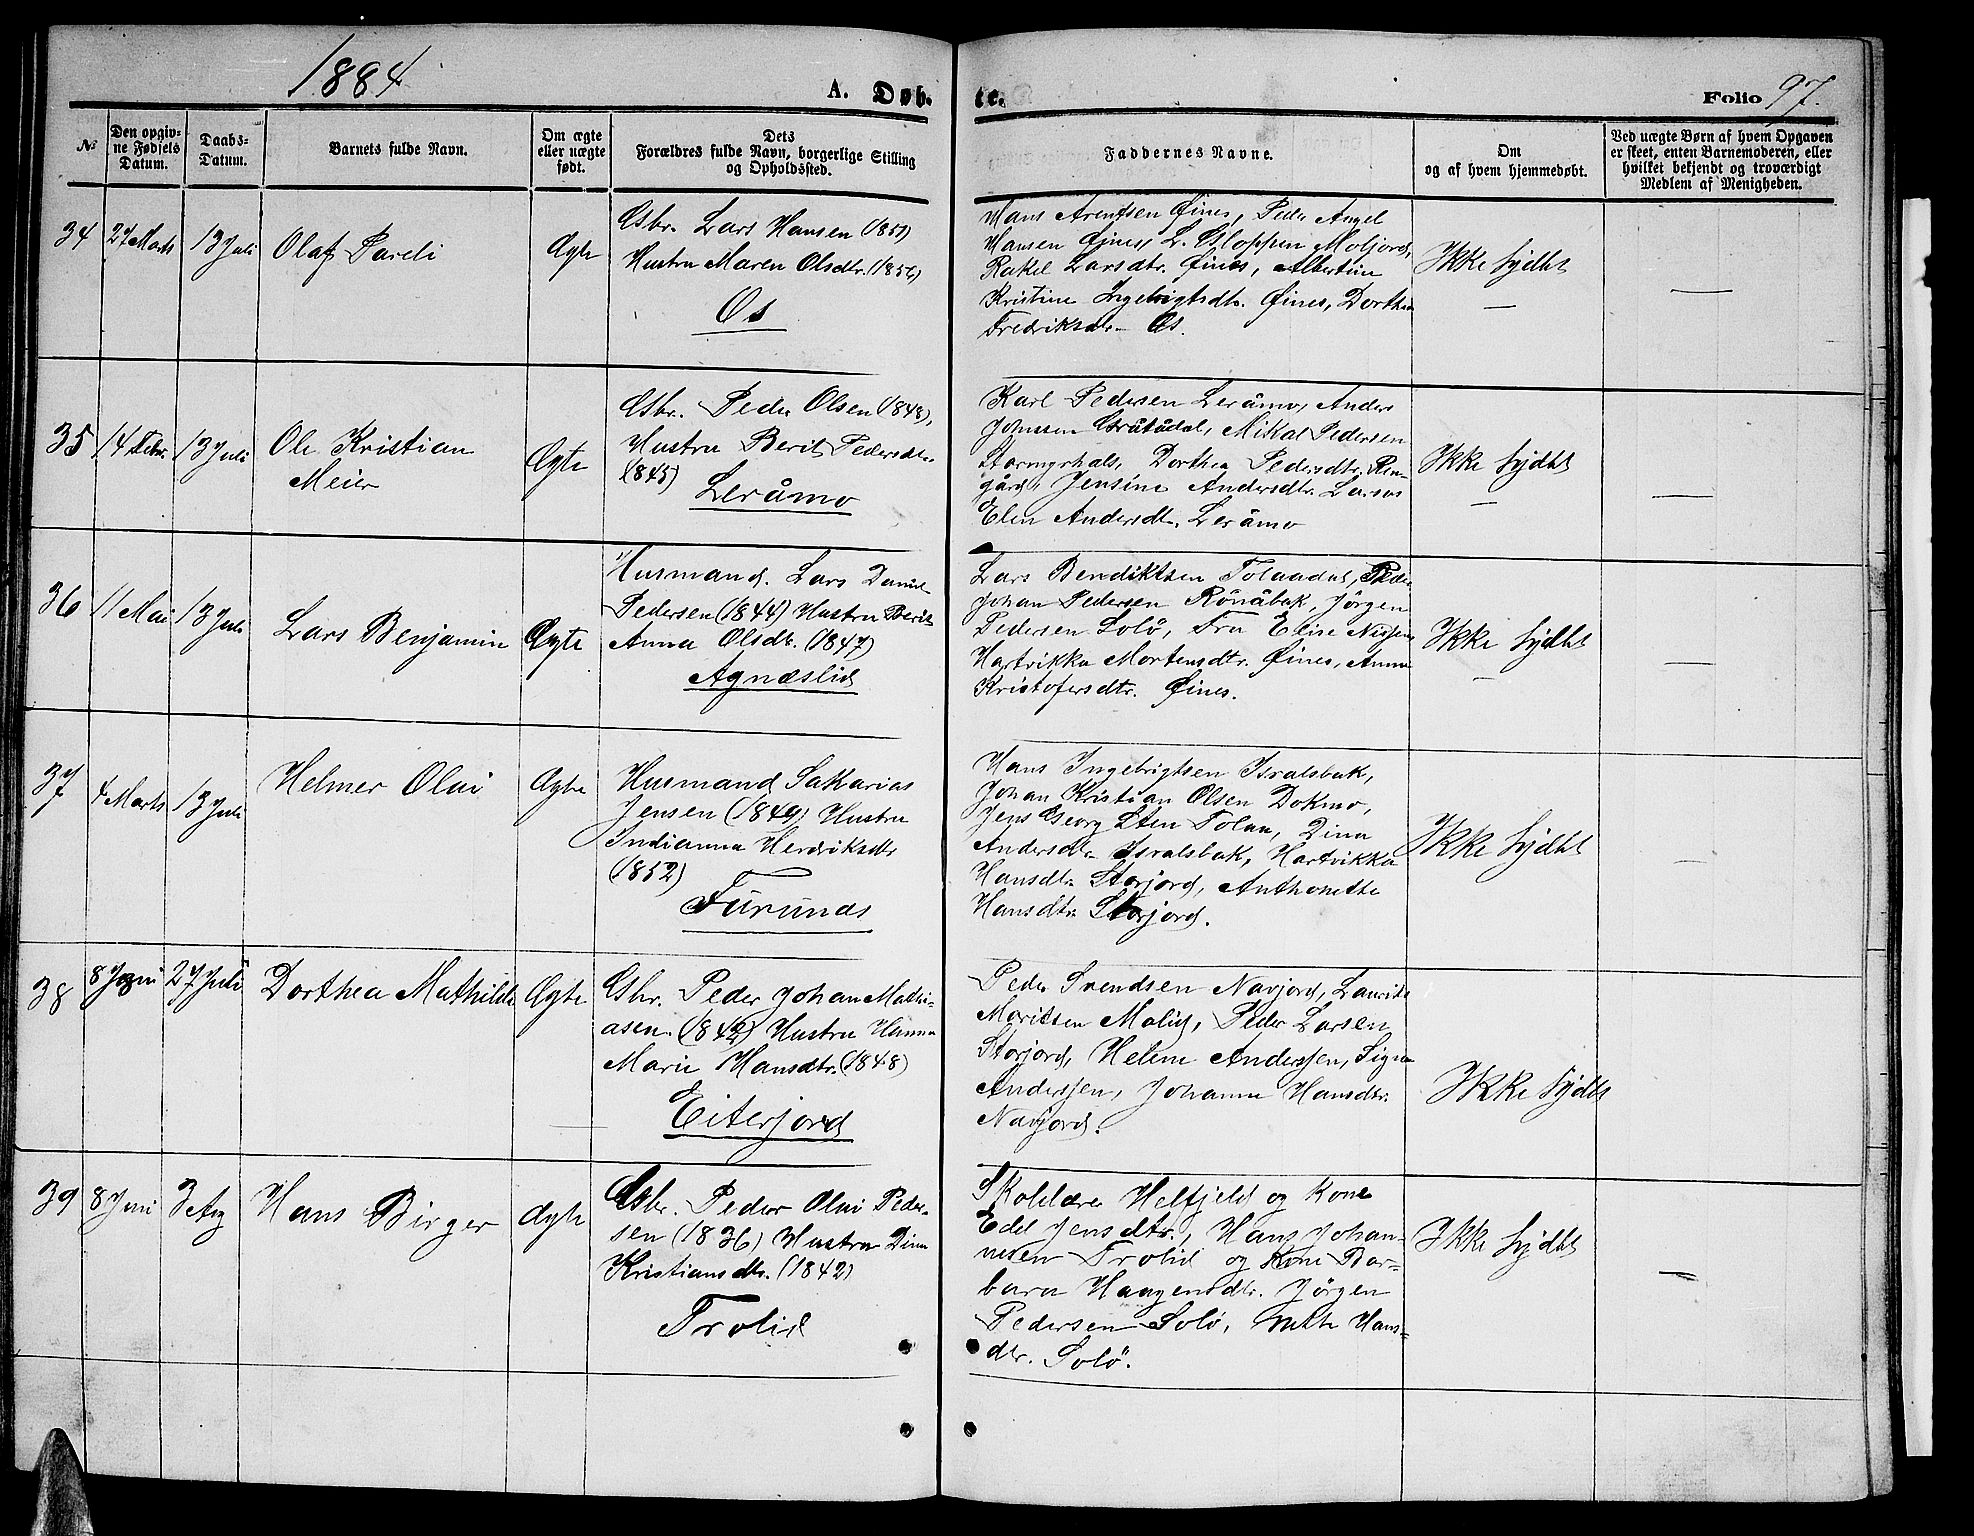 1884
A. Døb-
te.
Folio 97.
№
Den opgiv-
ne Fødsels
Datum.
Daabs-
Datum.
Barnets fulde Navn.
Om ægte
eller uægte
født.
Dets
Forældres fulde Navn, borgerlige Stilling
og Opholdssted.
Faddernes Navne.
Om
og af hvem hjemmedøbt.
Ved uægte Børn af hvem Opgaven
er skeet, enten Barnemoderen, eller
hvilket bekjendt og troværdigt
Medlem af Menigheden.
34
27 Marts
13 Juli
Olaf Pareli
Ægte
Gbr. Lars Hansen (1851)
Hustru Maren Olsdtr. (1856)
Os
Hans Arentsen Øines, Peder Angel
Hansen Øines, L. Moljord,
Rakel Larsdtr. Øines, Albertine
Kristine Ingebrigtsdtr. Øines, Dorthea
Fredriksdtr. Os.
Ikke hjdbt
—
—
35
14 Febr.
13 Juli
Ole Kristian
Meier
Ægte
Gbr. Peder Olsen (1848),
Hustru Berit Pedersdtr.
(1845)
Leråmo
Karl Pedersen Leråmo, Anders
Johnssen Gråtådal, Mikal Pedersen
Stormyrhals, Dorthea Pedersdtr. Ren-
gård, Jensine Andersdtr. Larsos
Elen Andersdtr. Leråmo
Ikke hjdbt
—
—
36
11 Mai
13 Juli
Lars Benjamin
Ægte
Husmand. Lars Daniel
Pedersen (1844) Hustru Berit
Anna Olsdtr. (1847)
Agnæslid
Lars Bendiktsen Tolaadal, Peder
Johan Pedersen Rönåbak, Jörgen
Pedersen Solö, Fru Elise Nissen
Hartvikka Mortensdtr. Øines, Anna
Kristofersdtr. Øines.
Ikke hjdbt
—
—
37
4 Marts
13 Juli
Helmer Olai
Ægte
Husmand Sakarias
Jensen (1849) Hustru
Indianna Hendriksdtr
(1852)
Furunds
Hans Ingebrigtsen Isralsbak,
Johan Kristian Olsen Dokmo,
Jens Georg Sten Tolaa, Dina
Andersdtr. Isralsbak, Hartvikka
Hansdtr. Storjord, Anthonette
Hansdtr. Storjord.
Ikke hjdbt
—
38
8 Juni
27 Juli
Dorthea Mathilde
Ægte
Gbr. Peder Johan Mathi-
asen. (1842) Hustru Hanna
Marie Hansdtr. (1848)
Eiterjord
Peder Svendsen Navjord, Laurits
Moritsen Molid, Peder Larsen
Storjord, Helene Anderssen, Signe
Anderssen, Johanna Hansdtr.
Navjord.
Ikke hjdbt
39
8 Juni
3 Aug
Hans Birger
Ægte
Gbr. Peder Olai Peder-
sen (1836) Hustru Dina
Kristiansdtr. (1842)
Trolid
Skolelærer Helfjeld og Kone
Edel Jensdtr., Hans Johan-
nesen Trolid og Kone Bar-
bara Haagensdtr. Jörgen
Pedersen Solö, Mette Hans-
dtr. Solö.
Ikke hjdbt
—